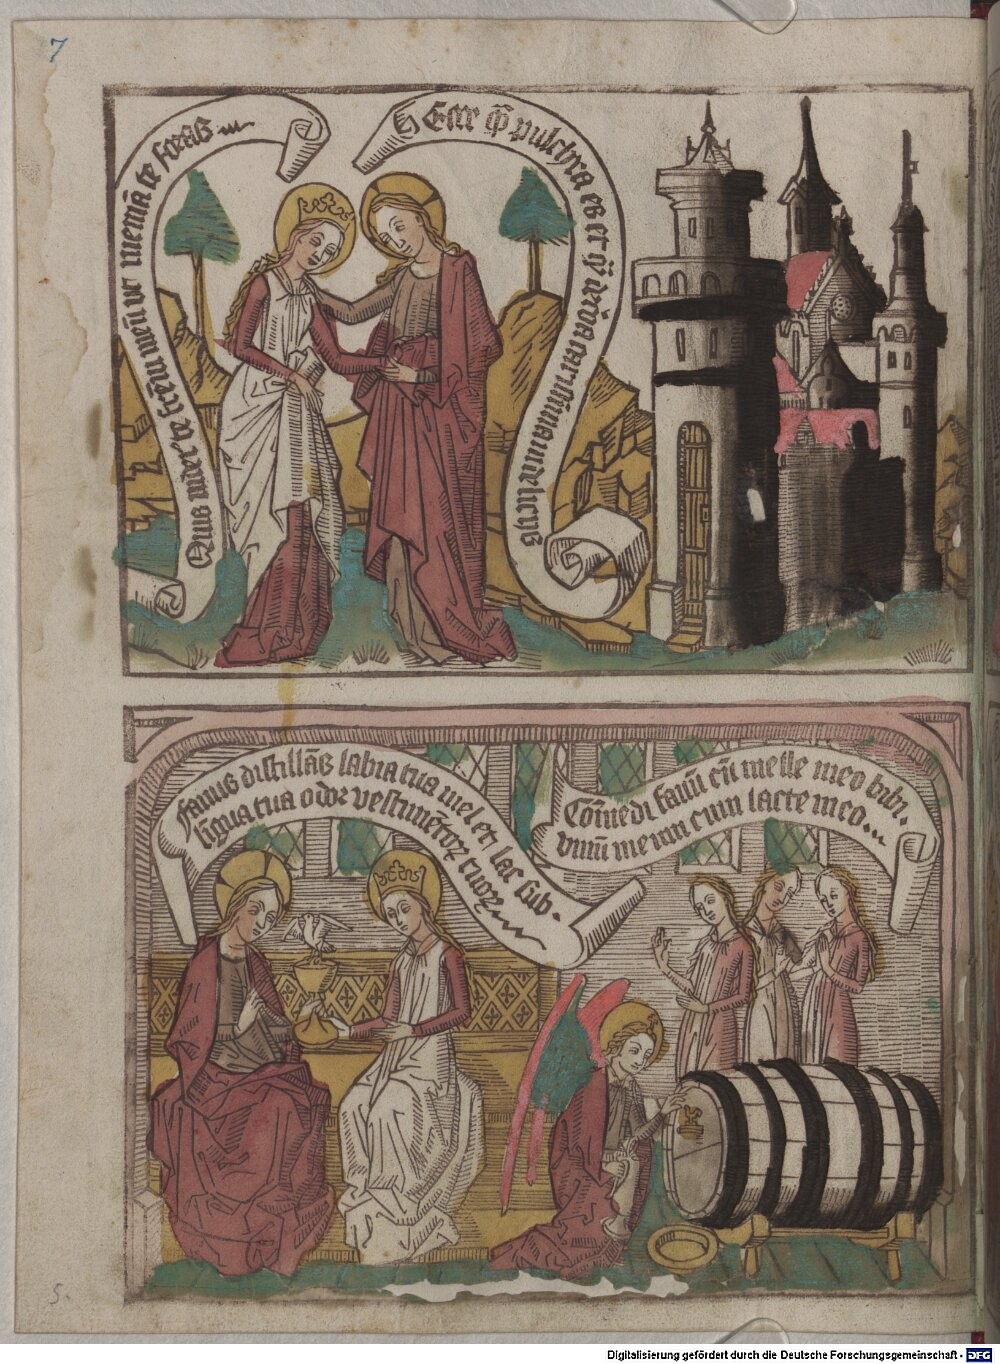 7
Quis michi det te fr̄em meū ut inueniā te foris
Ecce q̄ pulchra es et q̄ decora carissima in delicijs
fauus distillās labia tua mel et lac sub
ligua tua odor vestimētoꝝ tuoꝝ
Cōmedi fauū cū melle meo bibi
vinū meum cum lacte meo
5.
Digitalisierung gefördert durch die Deutsche Forschungsgemeinschaft - DFG